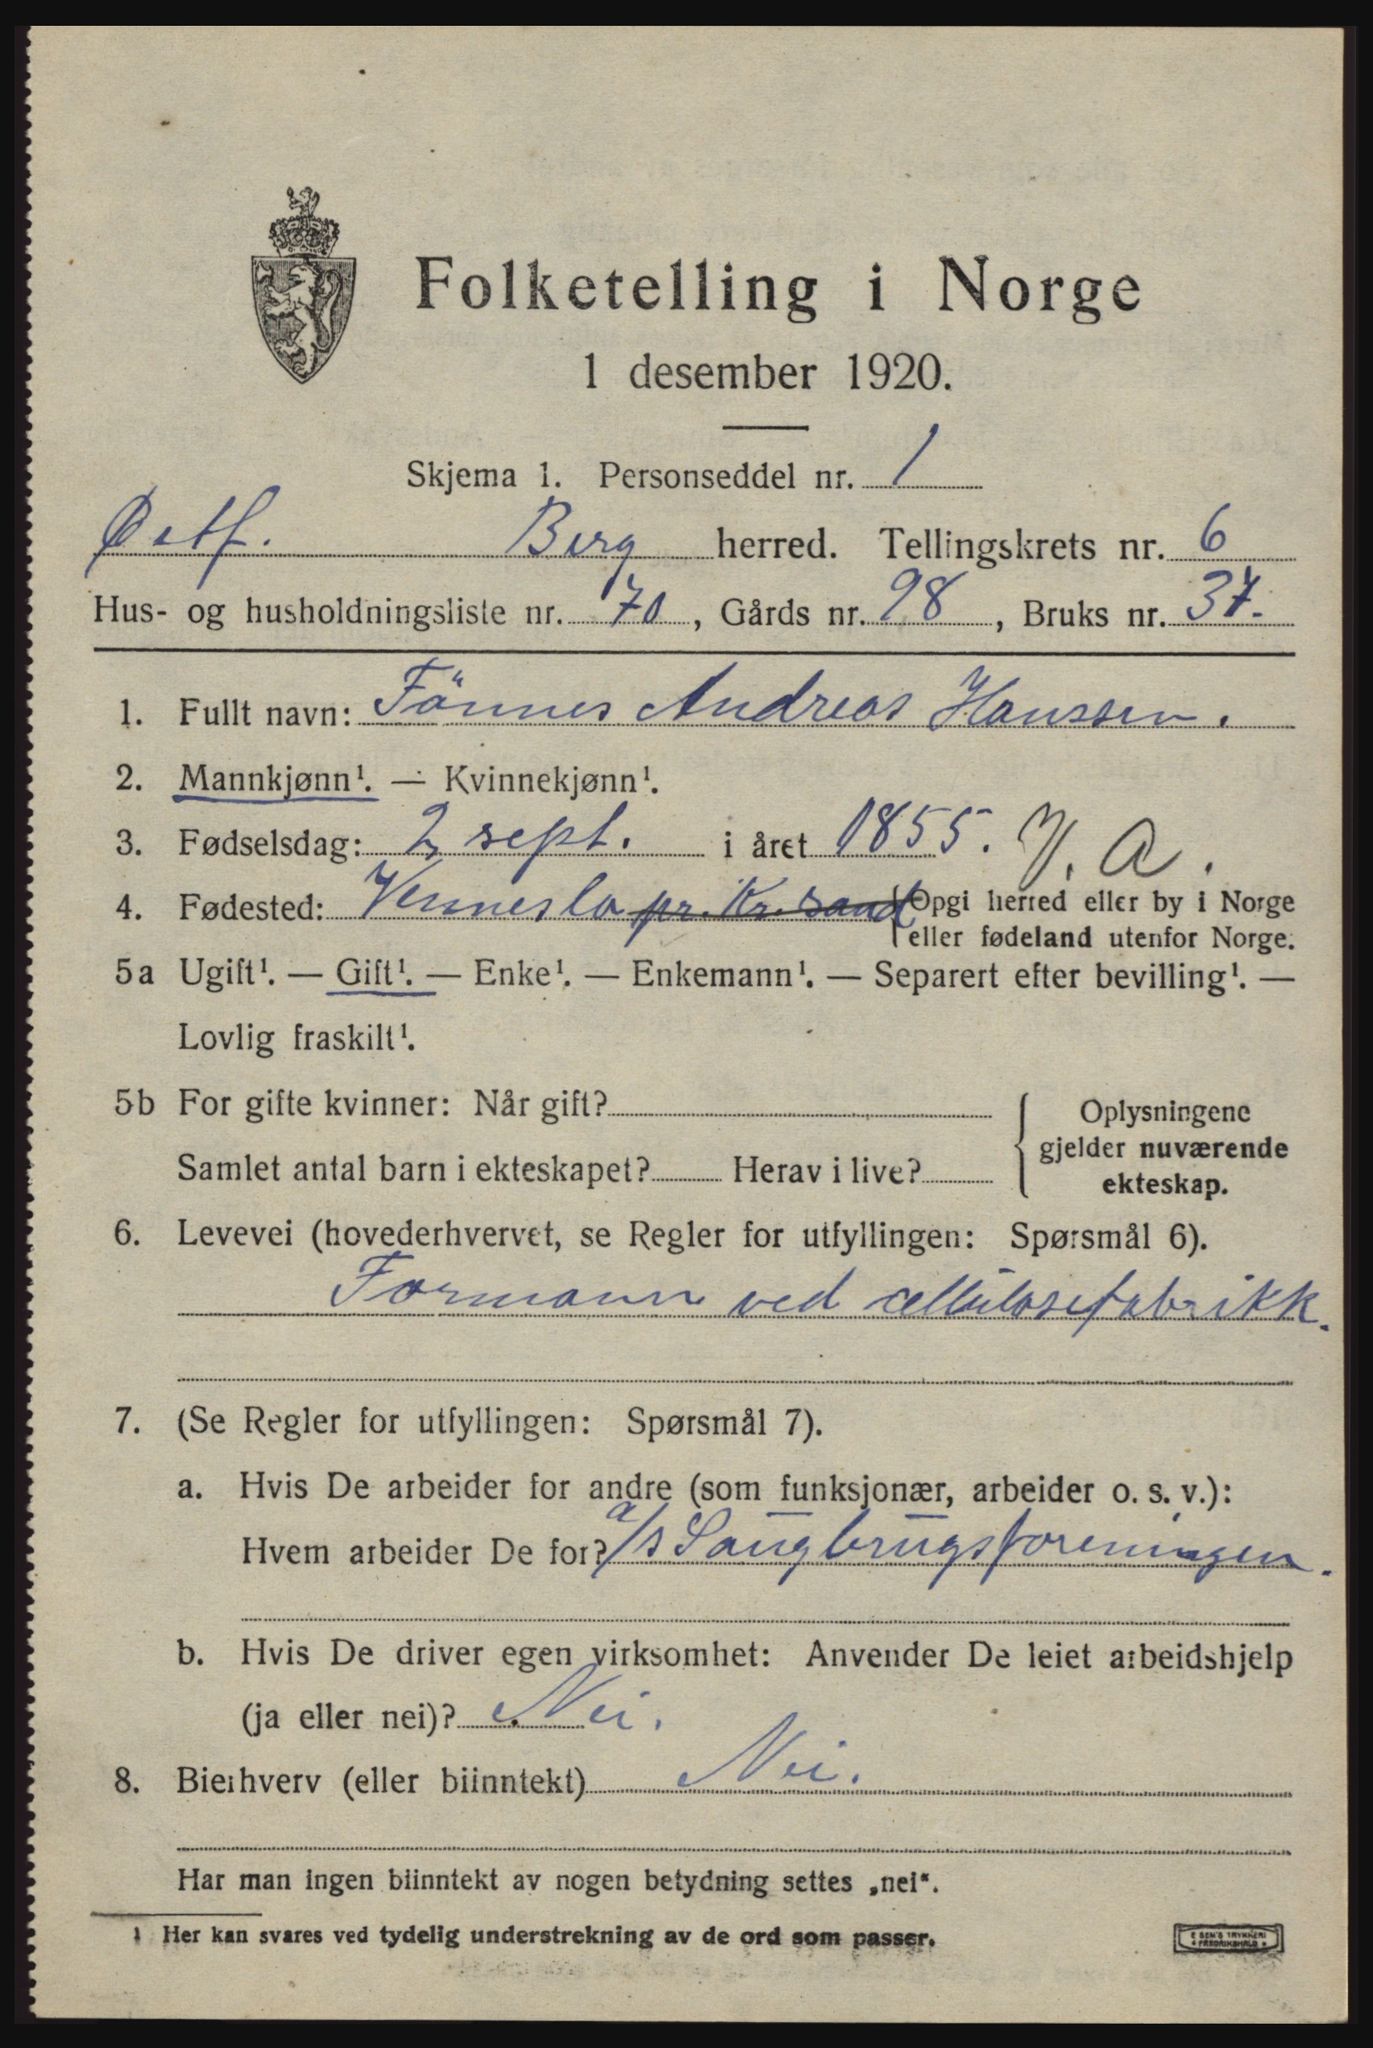 Folketelling i Norge
1 desember 1920.
Skjema 1. Personseddel nr. 1
Østf. Berg herred. Tellingskrets nr. 6
Hus- og husholdningsliste nr. 70, Gårds nr. 98, Bruks nr. 37.
1. Fullt navn: Tönnes Andreas Hanssen.
2. Mannkjønn¹. — Kvinnekjønn¹.
3. Fødselsdag: 2 sept. i året 1855. V. A.
4. Fødested: Vennesla pr. Kr.sand {Opgi herred eller by i Norge
eller fødeland utenfor Norge.
5a Ugift¹. — Gift¹. — Enke¹. — Enkemann¹. — Separert efter bevilling¹. —
Lovlig fraskilt¹.
5b For gifte kvinner: Når gift?
Samlet antal barn i ekteskapet? Herav i live?
Oplysningene
gjelder nuværende
ekteskap.
6. Levevei (hovederhvervet, se Regler for utfyllingen: Spørsmål 6).
Formann ved cellulosefabrikk.
7. (Se Regler for utfyllingen: Spørsmål 7).
a. Hvis De arbeider for andre (som funksjonær, arbeider o. s. v.):
Hvem arbeider De for? a/s Saugbrugsforeningen.
b. Hvis De driver egen virksomhet: Anvender De leiet arbeidshjelp
(ja eller nei)? Nei.
8. Bierhverv (eller biinntekt) Nei.
Har man ingen biinntekt av nogen betydning settes „nei“.
1 Her kan svares ved tydelig understrekning av de ord som passer.
E SEM'S TRYKKERI
FREDRIKSHALD